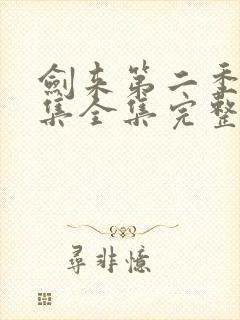 劍来第二季
集全集完整
尋非憶